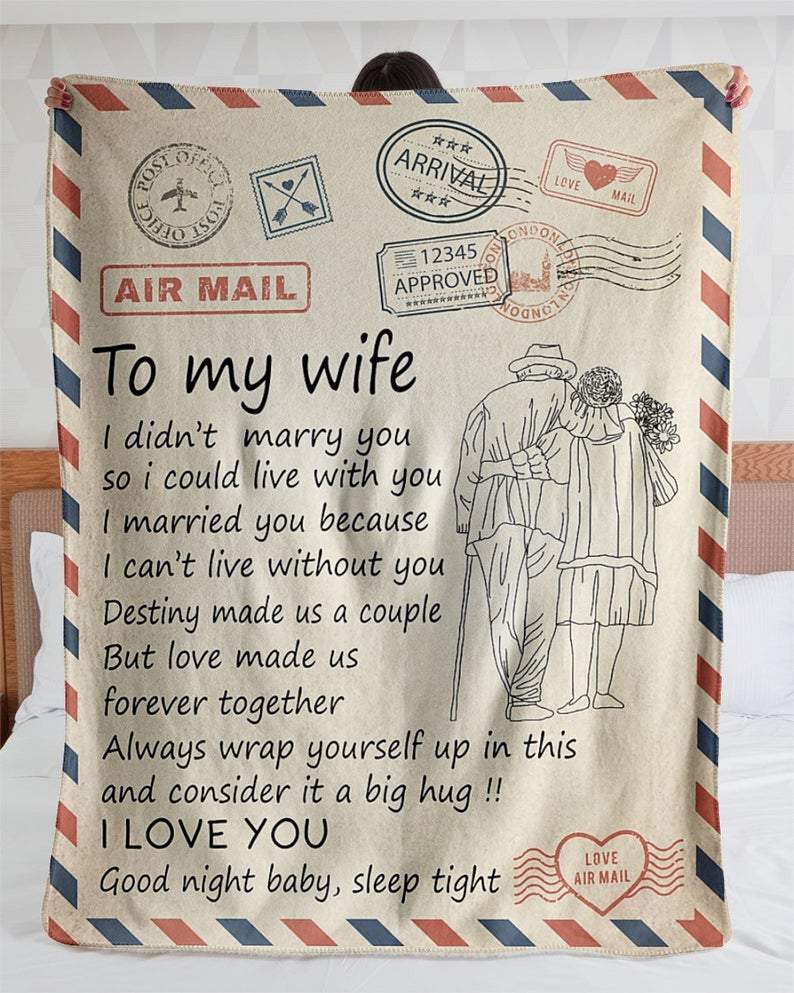 POST OFFICE
POST OFFICE
ARRIVAL
LOVE MAIL
12345
APPROVED
LONDON LONDON LONDON
AIR MAIL
To my wife
I didn't marry you
so i could live with you
I married you because
I can't live without you
Destiny made us a couple
But love made us
forever together
Always wrap yourself up in this
and consider it a big hug !!
I LOVE YOU
Good night baby, sleep tight
LOVE
AIR MAIL